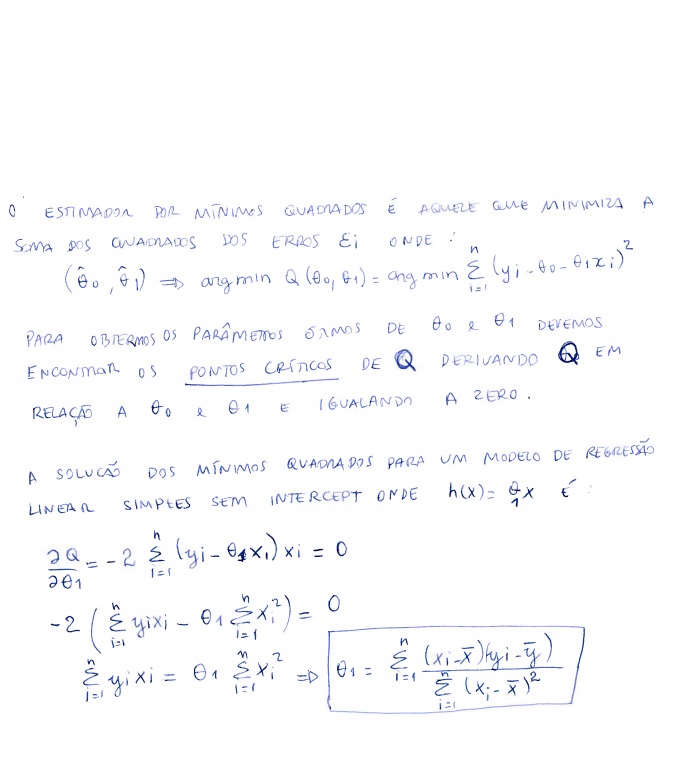 O ESTIMADOR POR MÍNIMOS QUADRADOS É AQUELE QUE MINIMIZA A
SOMA DOS QUADRADOS DOS ERROS Ei ONDE :
(θ̂0, θ̂1) ⇒ argmin Q(θ0, θ1) = argmin Σ_{i=1}^{n} (yi - θ0 - θ1xi)²
PARA OBTERMOS OS PARÂMETROS ÓTIMOS DE θ0 e θ1 DEVEMOS
ENCONTRAR OS PONTOS CRÍTICOS DE Q DERIVANDO Q EM
RELAÇÃO A θ0 e θ1 E IGUALANDO A ZERO.
A SOLUCÃO DOS MÍNIMOS QUADRADOS PARA UM MODELO DE REGRESSÃO
LINEAR SIMPLES SEM INTERCEPT ONDE h(x) = θ1x É :
∂Q/∂θ1 = -2 Σ_{i=1}^{n} (yi - θ1xi) xi = 0
-2 ( Σ_{i=1}^{n} yixi - θ1 Σ_{i=1}^{n} xi² ) = 0
Σ_{i=1}^{n} yixi = θ1 Σ_{i=1}^{n} xi² ⇒ θ1 = Σ_{i=1}^{n} (xi - x̄)(yi - ȳ) / Σ_{i=1}^{n} (xi - x̄)²